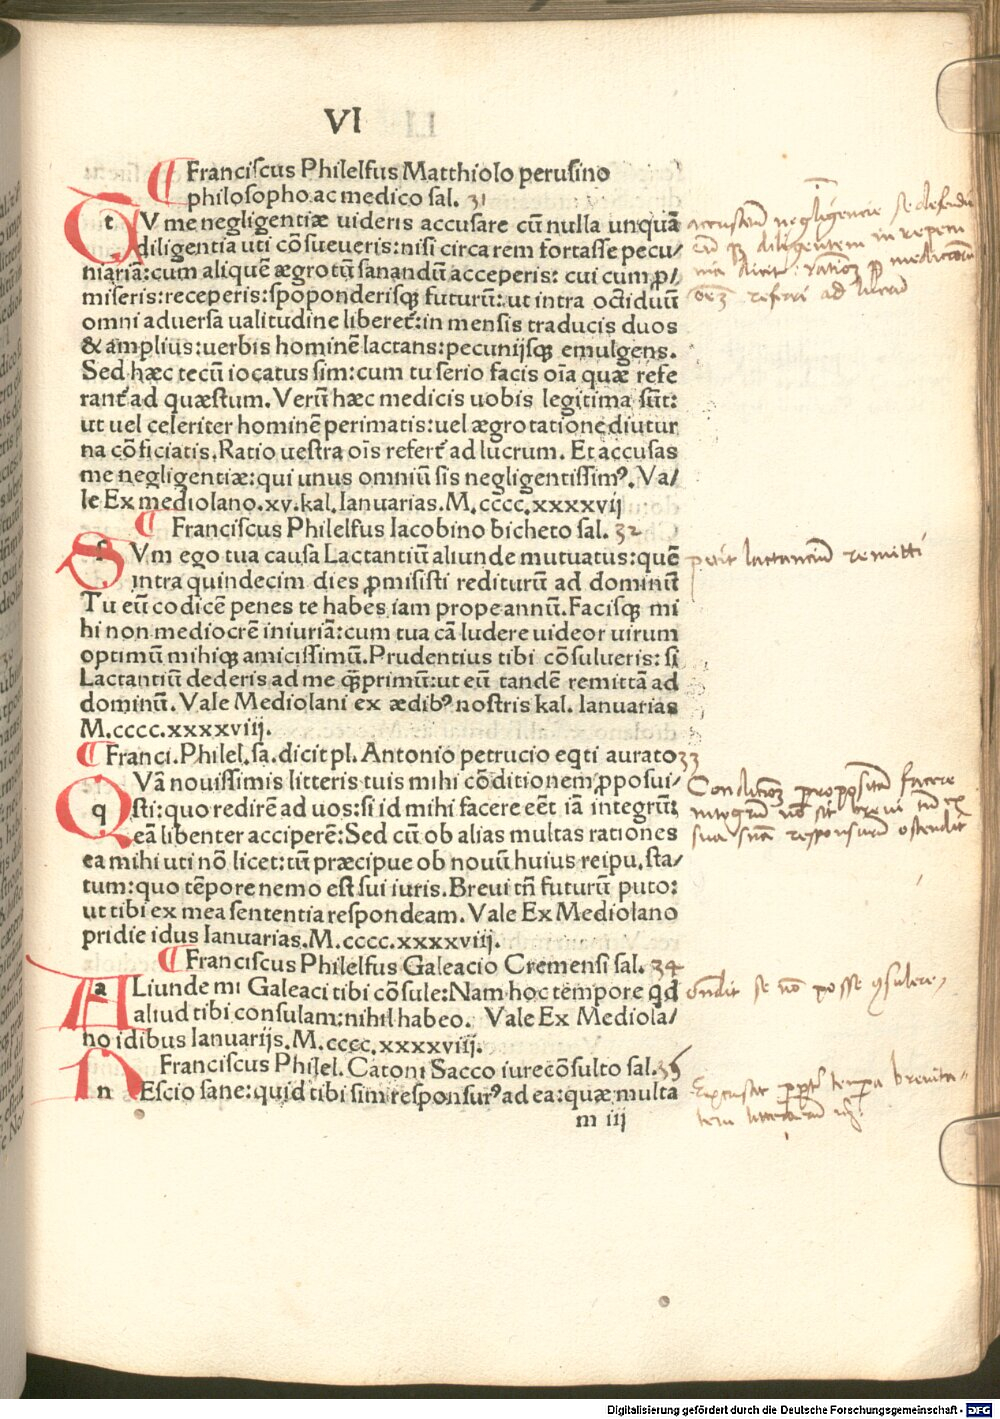 VI
¶ Franciscus Philelfus Matthiolo perusino
philosopho ac medico sal. 31
tV me negligentiæ uideris accusare cū nulla unquā
diligentia uti cōsueueris: nisi circa rem fortasse pecu/
niariā: cum aliquē ægrotū sanandū acceperis: cui cum ꝓ/
miseris: receperis: spoponderisqꝫ futurū: ut intra octiduū
omni aduersa ualitudine liberet᷑: in mensis traducis duos
& amplius: uerbis hominē lactans: pecunijsqꝫ emulgens.
Sed hæc tecū iocatus sim: cum tu serio facis oīa quæ refe
rant᷑ ad quæstum. Verū hæc medicis uobis legitima sūt:
ut uel celeriter hominē perimatis: uel ægrotatione diutur
na cōficiatis. Ratio uestra oīs refert᷑ ad lucrum. Et accusas
me negligentiæ: qui unus omniū sis negligentissimꝰ. Va/
le Ex mediolano. xv. kal. Ianuarias. M. cccc. xxxxvij
¶ Franciscus Philelfus Iacobino bicheto sal. 32
sVm ego tua causa Lactantiū aliunde mutuatus: quē
intra quindecim dies ꝓmisisti rediturū ad dominū
Tu eū codicē penes te habes iam prope annū. Facisqꝫ mi
hi non mediocrē iniuriā: cum tua cā ludere uideor uirum
optimū mihiqꝫ amicissimū. Prudentius tibi cōsulueris: si
Lactantiū dederis ad me qꝫprimū: ut eū tandē remittā ad
dominū. Vale Mediolani ex ædibꝰ nostris kal. Ianuarias
M. cccc. xxxxviij.
¶ Franci. Philel. sa. dicit pl. Antonio petrucio eqti aurato 33
qVā nouissimis litteris tuis mihi cōditionem ꝓposui/
sti: quo redirē ad uos: si id mihi facere eēt iā integrū:
eā libenter acciperē: Sed cū ob alias multas rationes
ea mihi uti nō licet: tū præcipue ob nouū huius reipu. sta/
tum: quo tēpore nemo est sui iuris. Breui tn̄ futurū puto:
ut tibi ex mea sententia respondeam. Vale Ex Mediolano
pridie idus Ianuarias. M. cccc. xxxxviij.
¶ Franciscus Philelfus Galeacio Cremensi sal. 34
aLiunde mi Galeaci tibi cōsule: Nam hoc tempore qd
aliud tibi consulam: nihil habeo. Vale Ex Mediola/
no idibus Ianuarijs. M. cccc. xxxxviij.
Franciscus Philel. Catoni Sacco iurecōsulto sal. 36
nEscio sane: quid tibi sim responsurꝰ ad ea: quæ multa
m iij
accusatū negligencie se defendit
petit lactanciū remitti
Conditionē propositā facere
integrū nō sit
suā responsurū ostendit
ondit se nō posse
Excusat tempa breuita
tem litterarū
Digitalisierung gefördert durch die Deutsche Forschungsgemeinschaft - DFG